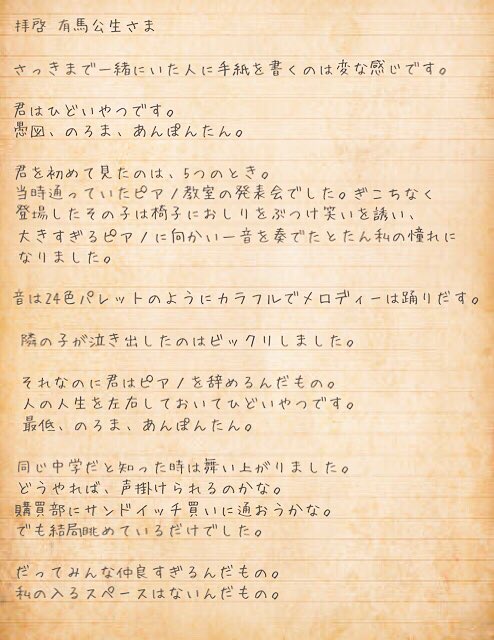 拝啓 有馬公生さま
さっきまで一緒にいた人に手紙を書くのは変な感じです。
君はひどいやつです。
愚図、のろま、あんぽんたん。
君を初めて見たのは、5つのとき。
当時通っていたピアノ教室の発表会でした。ぎこちなく
登場したその子は椅子におしりをぶつけ笑いを誘い、
大きすぎるピアノに向かい一音を奏でたとたん私の憧れに
なりました。
音は24色パレットのようにカラフルでメロディーは踊りだす。
隣の子が泣き出したのはビックリしました。
それなのに君はピアノを辞めるんだもの。
人の人生を左右しておいてひどいやつです。
最低、のろま、あんぽんたん。
同じ中学だと知った時は舞い上がりました。
どうやれば、声掛けられるのかな。
購買部にサンドイッチ買いに通おうかな。
でも結局眺めているだけでした。
だってみんな仲良すぎるんだもの。
私の入るスペースはないんだもの。